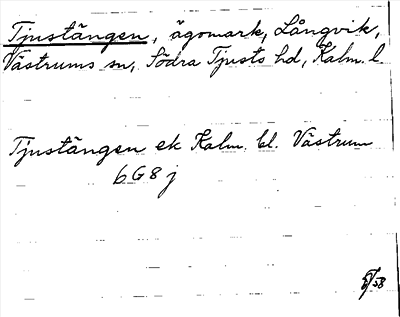 Tjustängen, ägomark, Långvik,
Västrums sn, Södra Tjusts hd, Kalm. l.
Tjustängen ek Kalm. bl. Västrum
6G8j